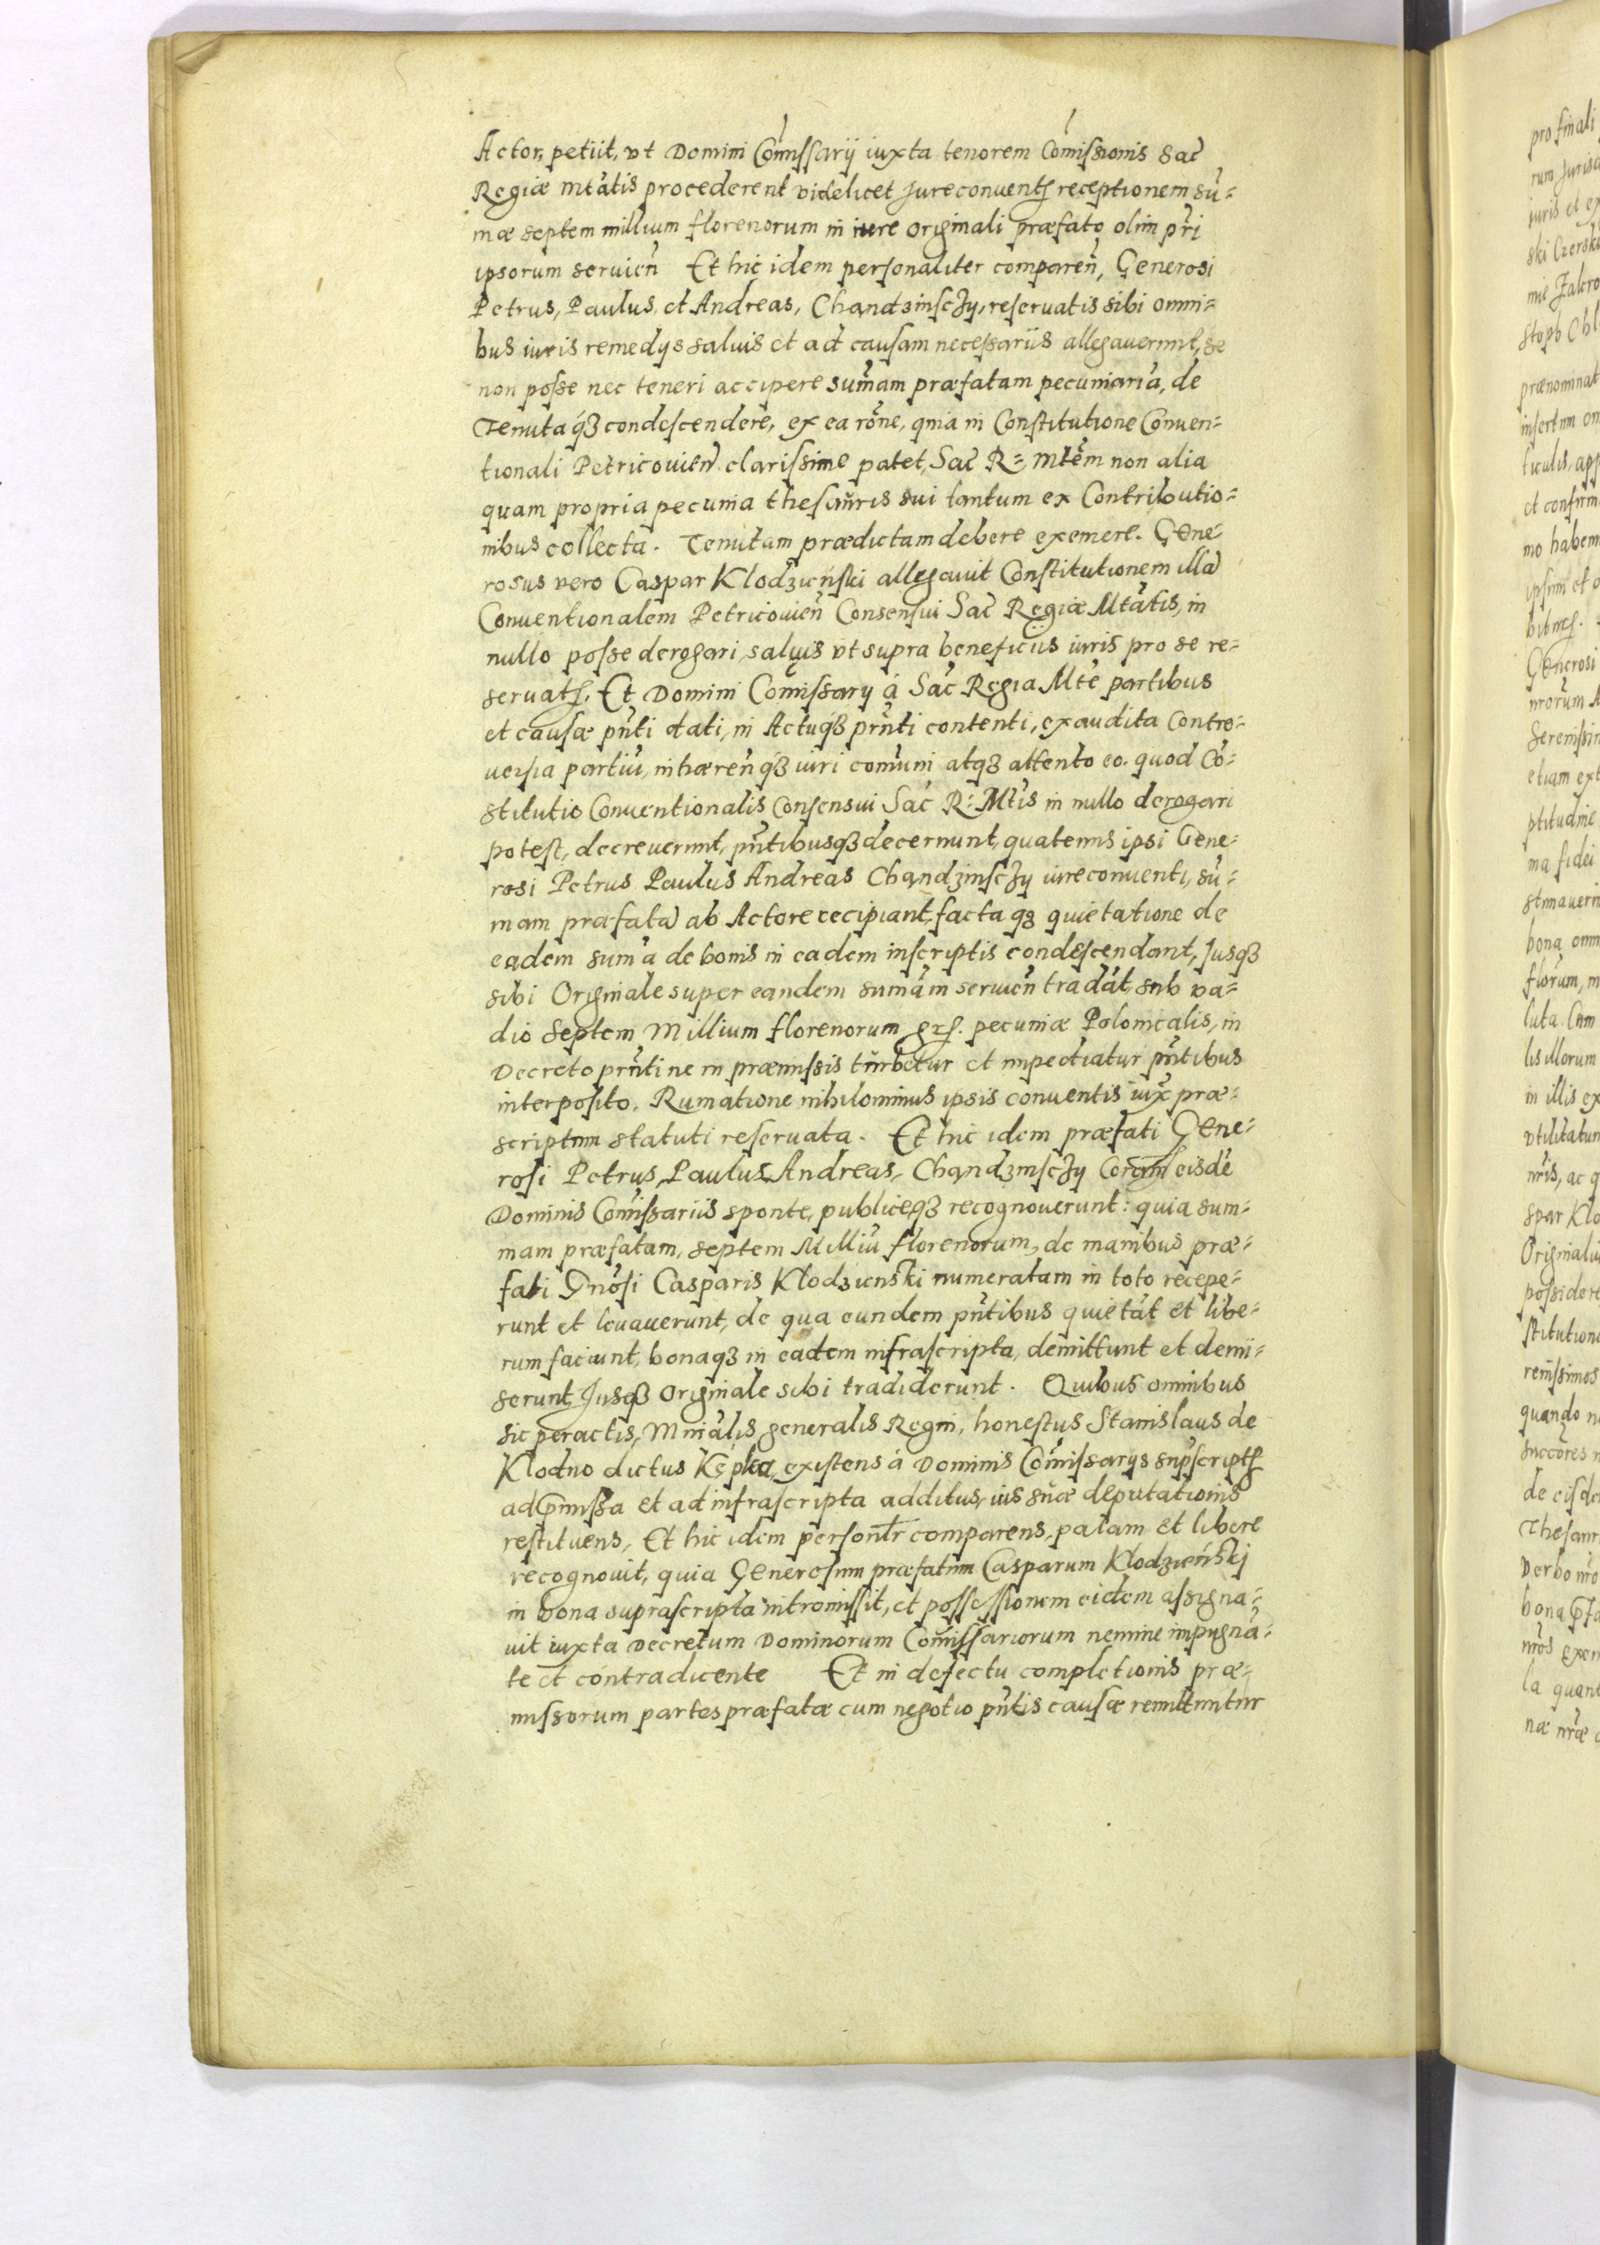 Actor, petiit, vt Domini Com̃issarij iuxta tenorem Com̃issionis Sac̃
Regiæ Mtãtis procederent videlicet Jureconventꝭ receptionem sũ=
mæ septem millium florenorum in iure originali præfato olim pr̃i
ipsorum servieñ Et hic idem personaliter compareñ, Generosi
Petrus, Paulus, et Andreas, Chandzinscẏ, reservatis sibi omni=
bus iuris remedijs salvis et ad causam necessariis allegaverunt, se
non posse nec teneri accipere sum̃am præfatam pecuniariã, de
Tenutaq́ꝫ condescendere, ex ea rõne, quia in Constitutione Conven=
tionali Petricovień clarissime patet, Sac̃ R= Mtẽm non alia
quam propria pecunia thesauris sui tantum ex Contributio=
nibus collecta. Tenutam prædictam debere exemere. Gene
rosus vero Caspar Klodzieński allegavit Constitutionem illã
Conventionalem Petricovieñ Consensui Sac̃ Regiæ Mtãtis, in
nullo posse derogari, salvis vt supra beneficiis iuris pro se re=
servatꝭ. Et Domini Com̃issarij á Sac̃ Regia Mtẽ partibus
et causæ pñti dati, in Actuq́ꝫ pr̃nti contenti, exaudita contro=
versia partiũ, inhæreñ q́ꝫ iuri com̃uni atqꝫ attento eo. quod Cõ=
stitutio Conventionalis Consensui Sac̃ R: Mtĩs in nullo derogari
potest, decreverunt, pñtibusqꝫ decernunt, quatenus ipsi Gene=
rosi Petrus Paulus Andreas Chandzinscẏ iureconventi, sũ=
mam præfatã ab Actore recipiant, facta qꝫ quietatione de
eadem sum̃a de bonis in eadem inscriptis condescendant, Jusqꝫ
sibi Originale super eandem sum̃am servień tradãt sub va=
dio Septem Millium florenorum grꝭ. pecuniæ Polonicalis, in
Decreto pr̃nti ne in præmissis turbetur et impediatur pñtibus
interposito. Rumatione nihilominus ipsis conventis iux̃ præ=
scriptum statuti reservata. Et hic idem præfati Gene=
rosi Petrus, Paulus, Andreas, Chandzinscẏ Coram eisdẽ
Dominis Com̃issariis sponte, publiceqꝫ recognoverunt: quia sum=
mam præfatam, septem Milliũ florenorum, de manibus præ=
fati Gnõsi Casparis Klodzienski numeratam in toto recepe=
runt et levaverunt, de qua eundem pñtibus quietãt et libe=
rum faciunt, bonaqꝫ in eadem infrascripta, demittunt et demi=
serunt, Jusqꝫ Originale sibi tradiderunt. Quibus omnibus
sic peractis, Minĩalis generalis Regni, honestus Stanislaus de
Klodno dictus Kępka, existens á Dominis Com̃issarijs sup̃scriptꝭ
ad p̃missa et ad infrascripta additus, iiis suæ deputationis
restituens, Et hic idem personl̃r comparens, palam et libere
recognovit, quia Generosum præfatum Casparum Klodzieńskj
in bona suprascripta intromissit, et possessionem eidem assigna=
vit iuxta Decretum Dominorum Com̃issariorum nemine impugnã=
te et contradicente Et in defectu completionis præ=
missorum partes præfatæ cum negotio pñtis causæ remittuntur